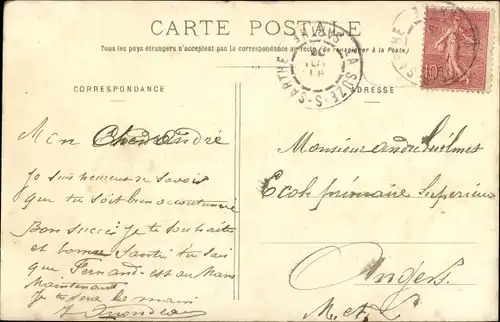 CARTE POSTALE
Tous les pays étrangers n'acceptent pas la correspondance au recto (Se renseigner à la Poste)
LA SUZE-S-SARTHE
10
CORRESPONDANCE
Mon Cher André
Je suis heureuse de savoir
que tu sois bien accoutumé
Bon succè Je te souhaite
et bonne Santé tu sais
que Fernand est au Mans
Maintenant
Je te serre la main
ADRESSE
Monsieur André
École primaire Supérieure
Angers
M. et L.